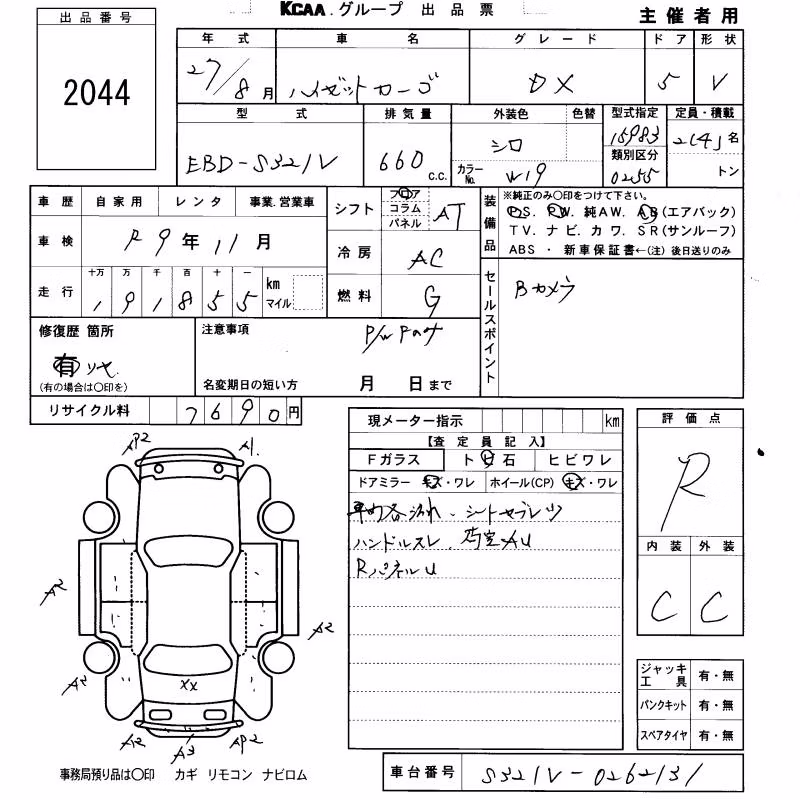 KCAA.グループ 出品票
主催者用
出品番号
2044
年式 車名 グレード ドア 形状
27/8月 ハイゼットカーゴ DX 5 V
型式 排気量 外装色 色替 型式指定 定員・積載
EBD-S321V 660 c.c. シロ カラーNo. W19 15983 2(4)名
類別区分
0255 トン
車歴 自家用 レンタ 事業.営業車
車検 R9年11月
走行 十万 万 千 百 十 一 km マイル
191855
シフト フロア コラム パネル AT
冷房 AC
燃料 G
装備品 ※純正のみ○印をつけて下さい。
P.S. P.W. 純AW. AB(エアバック)
TV. ナビ. カワ. SR(サンルーフ)
ABS ・ 新車保証書←(注) 後日送りのみ
セールスポイント
Bカメラ
修復歴 箇所
有
(有の場合は○印を)
注意事項
名変期日の短い方 月 日まで
リサイクル料 7690円
現メーター指示 km
【査定員記入】
Fガラス トビ石 ヒビワレ
ドアミラー キズ・ワレ ホイール(CP) キズ・ワレ
車内各汚れ・シートヤブレツ
ハンドルスレ.荷室AU
RパネルU
評価点
R
内装 外装
C C
ジャッキ工具 有・無
パンクキット 有・無
スペアタイヤ 有・無
AP2 A1
A2
A2
A2
XX
A2 A3 AP2
事務局預り品は○印 カギ リモコン ナビロム
車台番号 S321V-0262131